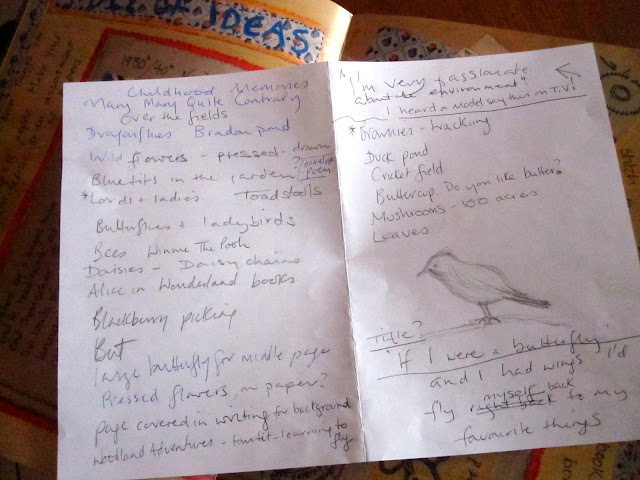 OF IDEAS
1930's 40's
Childhood Memories
Mary Mary Quite Contrary
Over the fields
Dragonflies Bradan pond
Wild flowers - pressed - drawn
Bluetits in the garden ?
envelope
poem
*Lords + ladies Toadstools
Butterflies + ladybirds
Bees Winnie The Pooh
Daisies - Daisy chains
Alice in Wonderland books
Blackberry picking
But
large butterfly for middle page
Pressed flowers, on paper?
page covered in writing for background
Woodland Adventures - learning to
fly
"I'm very passionate
about the environment"
I heard a model say this on T.V!
*Brownies - tracking
Duck pond
Cricket field
Buttercup. Do you like butter?
Mushrooms - 100 acres
Leaves
Title?
If I were a butterfly
and I had wings I'd
fly right back myself back to my
favourite things